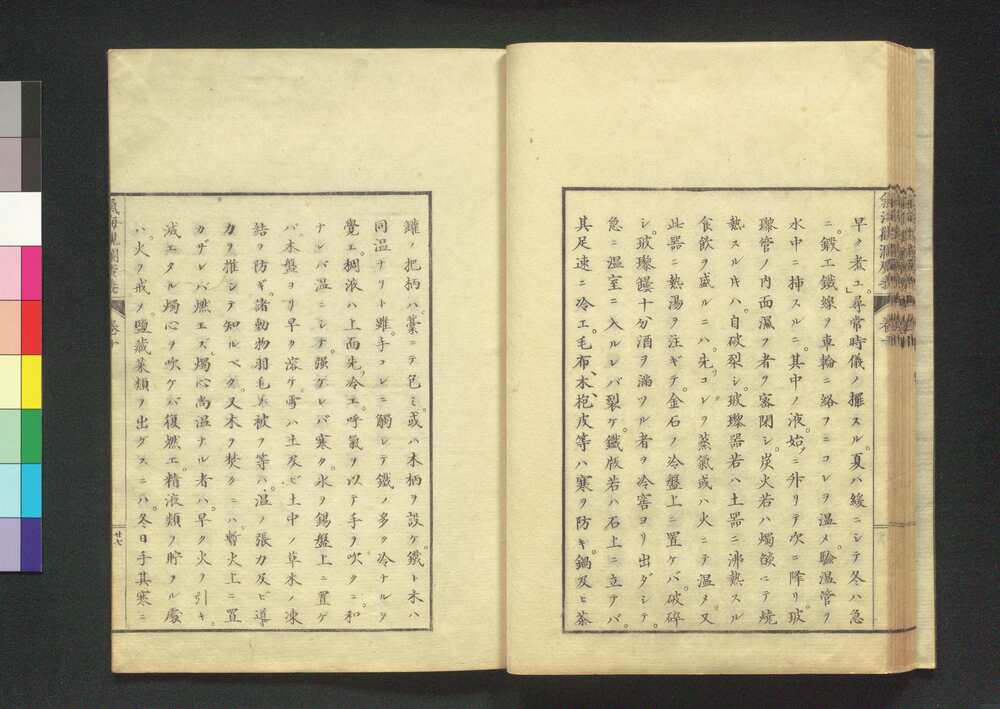 早ク煮ユ」尋常時儀ノ擺スル。夏ハ緩ニシテ冬ハ急
ニ。鍛エ鐵線ヲ車輪ニ絡フニコレヲ溫メ。驗溫管ヲ
水中ニ挿スルニ。其中ノ液。始ニ升リテ次ニ降リ。玻
瓈管ノ内面濕フ者ヲ密閉シ。炭火若ハ燭燄ニテ燒
熱スル片ハ。自破裂シ。玻瓈器若ハ土器ニ沸熱スル
食飲ヲ盛ルニハ。先コレヲ蒸氣或ハ火ニテ溫タ又
此器ニ熱湯ヲ注ギテ。金石ノ冷盤上ニ置ケバ。破碎
シ。玻瓈罎十分酒ヲ滿ツル者ヲ冷窖ヨリ出ダシテ。
急ニ溫室ニ入ルレバ裂ケ。鐵版若ハ石上ニ立テバ。
其足速ニ冷エ。毛布、木、枹皮等ハ寒ヲ防ギ。鍋及ヒ茶
鑵ノ把柄ハ。藁ニテ包ミ。或ハ木柄ヲ設ケ。鐵ト木ハ
同溫ナリト雖。手コレニ觸レテ鐵ノ多ク冷ナルヲ
覺エ。椆液ハ上面先冷エ。呼氣ヲ以テ手ヲ吹クニ。和
ナレバ溫ニシテ。强ケレバ寒ク。氷ヲ錫盤上ニ置ケ
バ。木盤ヨリ早ク溶ケ。雪ハ土及ビ土中ノ草木ノ凍
結ヲ防ギ。諸動物羽毛ヲ被フ等ハ。溫ノ張力及ビ導
力ヲ推シテ知ルベク。又木ヲ焚クニハ。暫火上ニ置
カザレバ燃エズ。燭心尚溫ナル者ハ。早ク火ヲ引キ。
滅エタル燭心ヲ吹ケバ復燃エ。精液類ヲ貯ヲル處
ハ火ヲ戒メ。鹽藏菜類ヲ出ダスニハ。冬日手其寒ニ
卷十
廿七